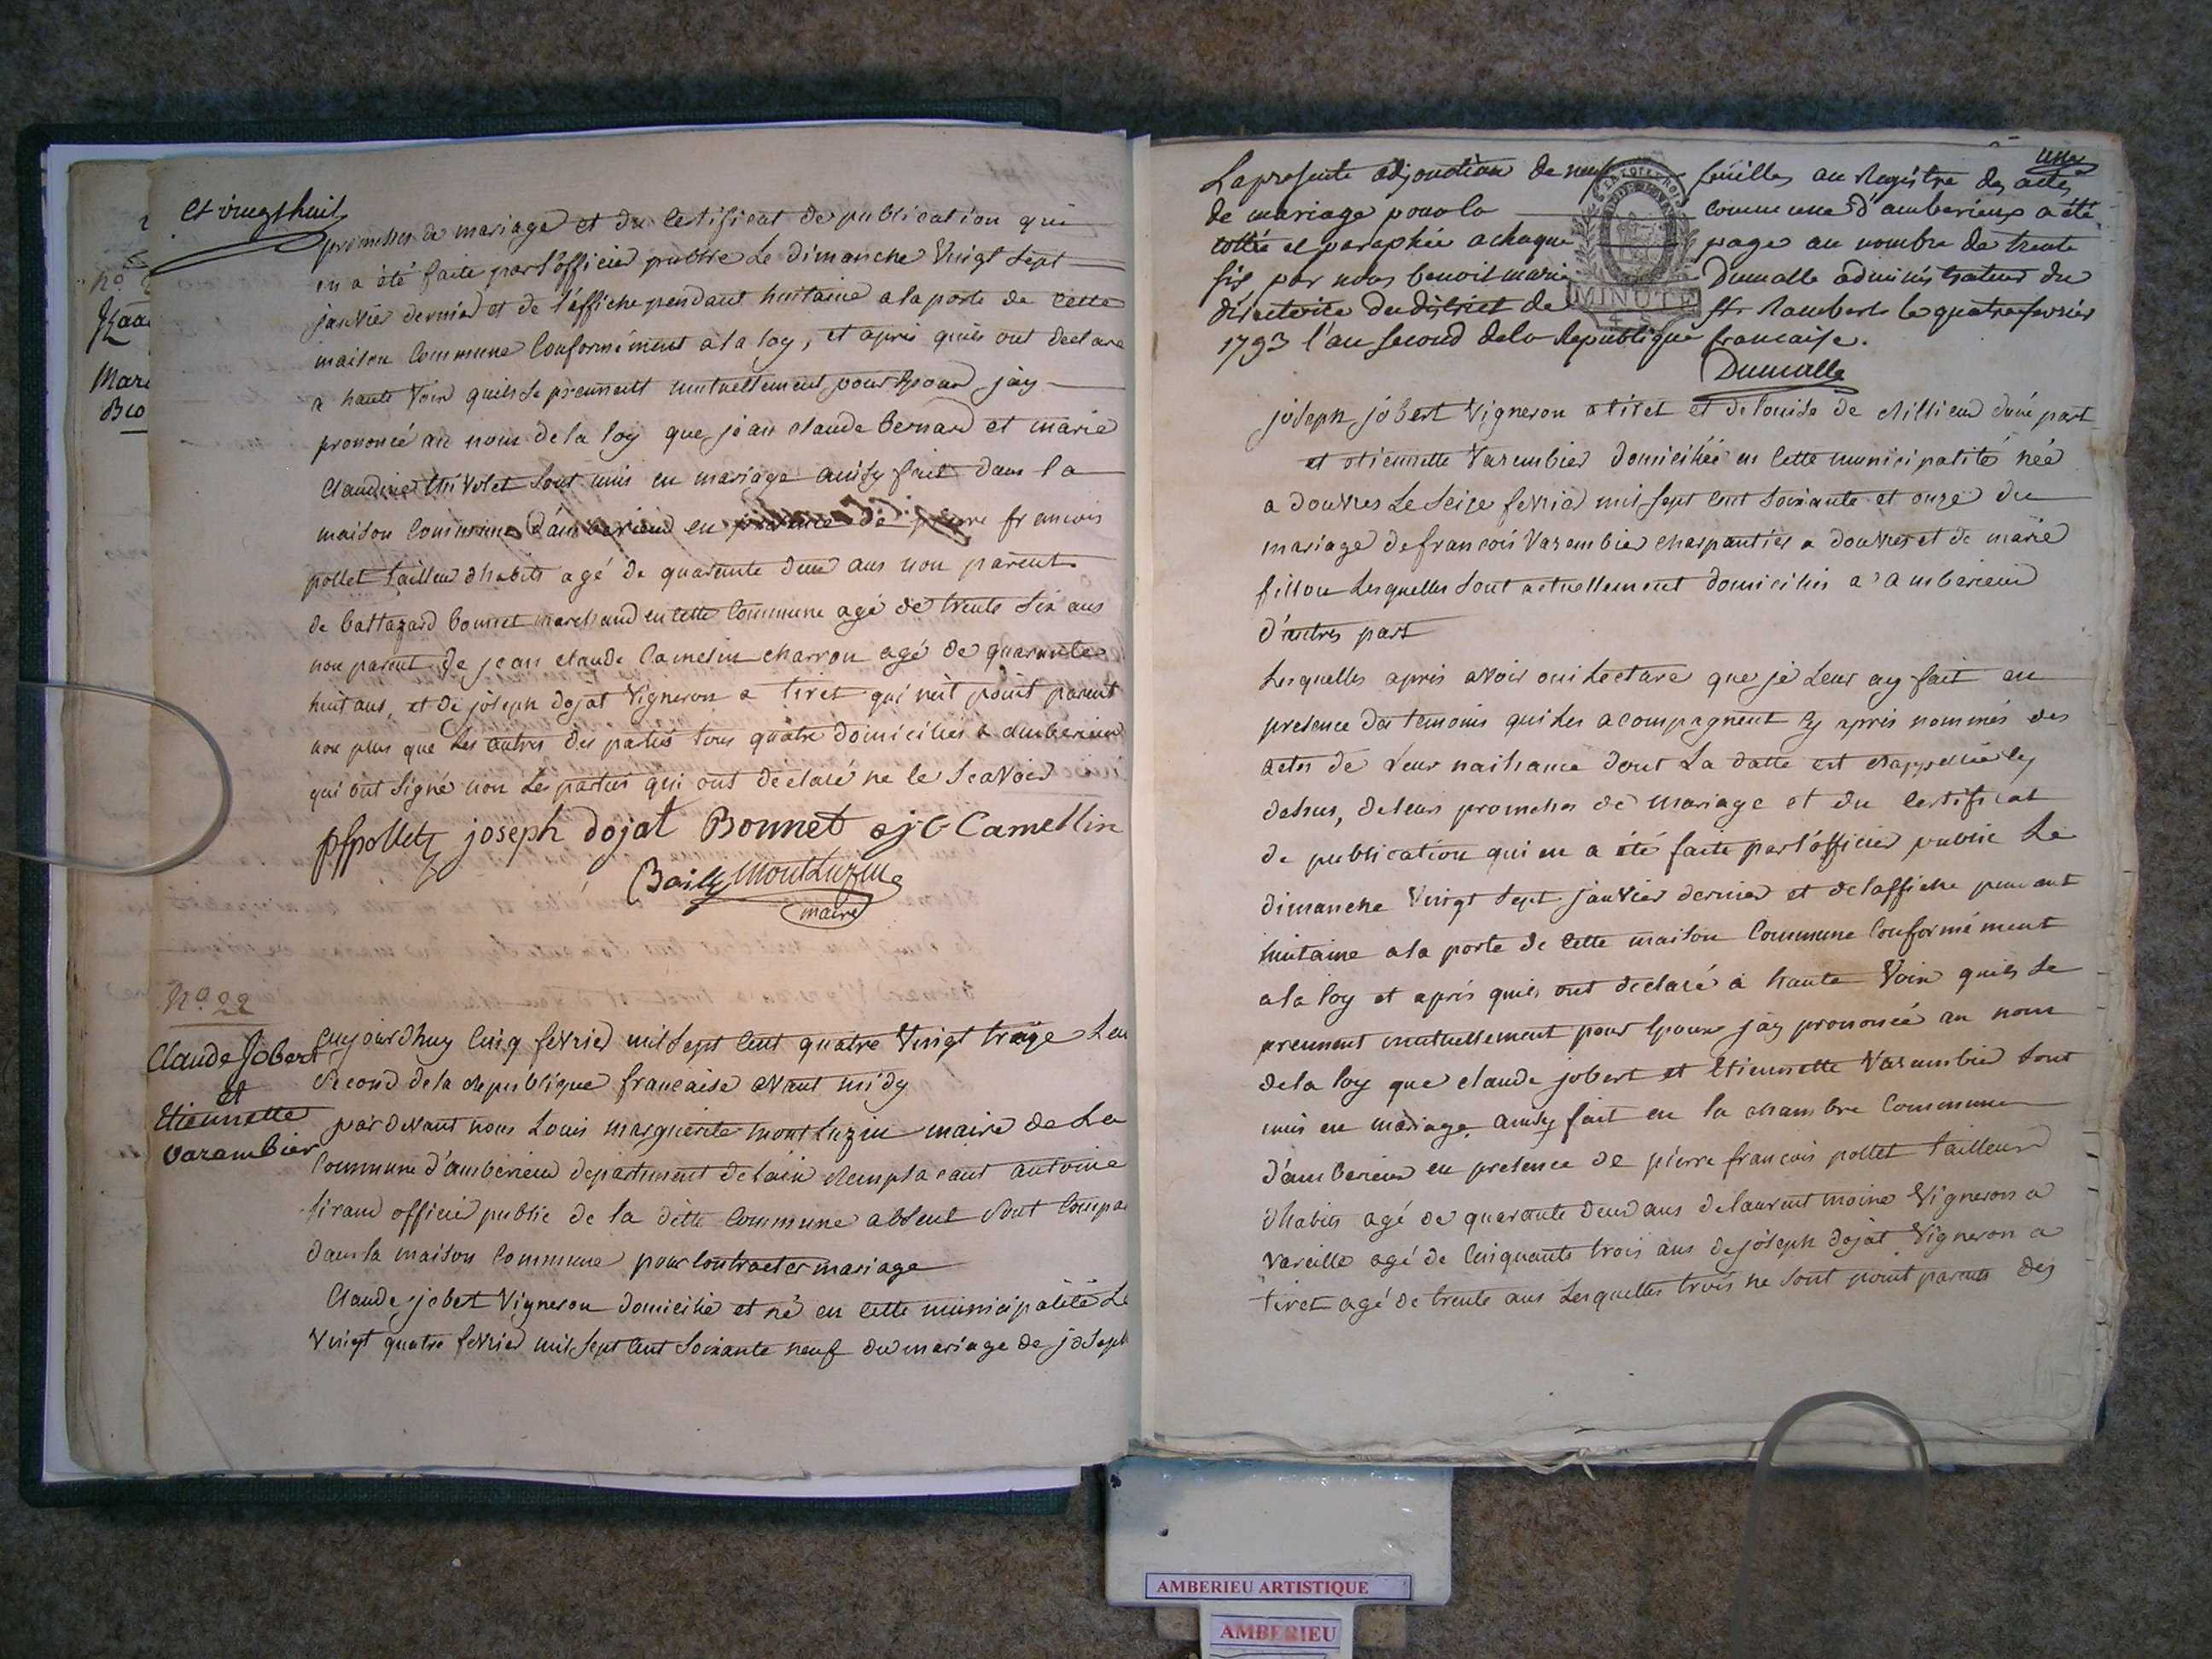 et vingt huit
promesses de mariage et du Certificat de publication qui
en a été faite par l'officier public Le dimanche Vingt Sept
janvier dernier et de l'affiche pendant huitaine a la porte de Cette
maison Commune Conformément a la loy, et après qu'ils ont declare
a haute Voix quils Se prennent mutuellement pour Epoux jay
prononcé au nom de la loy que jean claude Bernard et marie
Claudine Chivolet Sont unis en mariage ainsy fait dans la
maison Commune d'amberieux en presence de pierre francois
pollet tailleur dhabits agé de quarante deux ans non parent
de battazard bonnet marchand en cette Commune agé de trente Six ans
non parent de jean claude Camelin charron agé de quarante
huit ans, et de joseph dojat Vigneron a tiret qui n'est point parent
non plus que Les autres des parties tous quatre domiciliés a amberieux
qui ont Signé non Les parties qui ont déclaré ne le Scavoir
pfpollet joseph dojat Bonnet j C Camellin
Bailly Montluzin
maire
N.º 22
Claude Jobert
et
Etiennette
Varambier
aujourdhuy Cinq fevrier mil Sept Cent quatre Vingt treize Lan
Second de la republique francaise avant midy
par devant nous Louis marguerite montluzin maire de La
Commune d'amberieux departement de lain remplacant antoine
tirand officier public de la ditte Commune absent Sont Compa
dans la maison Commune pour Contracter mariage
Claude jobert Vigneron domicilié et né en Cette municipalité Le
Vingt quatre fevrier mil Sept Cent Soixante neuf du mariage de joseph
une
La presente adjonction de neuf feuilles au Registre des actes
de mariage pour la commune d'amberieux a été
cottée et paraphée a chaque page au nombre de trente
six par nous benoit marie Dumalle administrateur du
directoire du district de St. Rambert le quatre fevrier
1793 l'an second de la Republique francaise.
MINUTE
Dumalle
joseph jobert Vigneron a tiret et de louise de chillieux d'une part
et etiennette Varambier domiciliée en Cette municipalité née
a douvres Le Seize fevrier mil Sept Cent Soixante et onze du
mariage de francois Varambier charpantier a douvres et de marie
fillon Lesquelles Sont actuellement domiciliés a amberieux
d'autres part
Lesquelles apris avoir oui Lecture que je Leur ay fait en
presence des temoins qui Les acompagnent Cy apris nommés des
actes de Leur naissance dont La datte est rappellée Cy
dessus, de leurs promesses de mariage et du Certificat
de publication qui en a été faite par l'officier public Le
dimanche Vingt Sept janvier dernier et de laffiche pendant
huitaine a la porte de Cette maison Commune Conformément
a la loy et apris quils ont declaré a haute Voix quils Se
prennent mutuellement pour Epoux jay prononcé au nom
de la loy que claude jobert et Etiennette Varambier Sont
unis en mariage, ainsy fait en la chambre Commune
d'amberieux en presence de pierre francois pollet tailleur
dhabits agé de quarante deux ans de laurent moine Vigneron a
Vareille agé de Cinquante trois ans de joseph dojat Vigneron a
tiret agé de trente ans Lesquelles trois ne Sont point parents des
AMBERIEU ARTISTIQUE
AMBERIEU